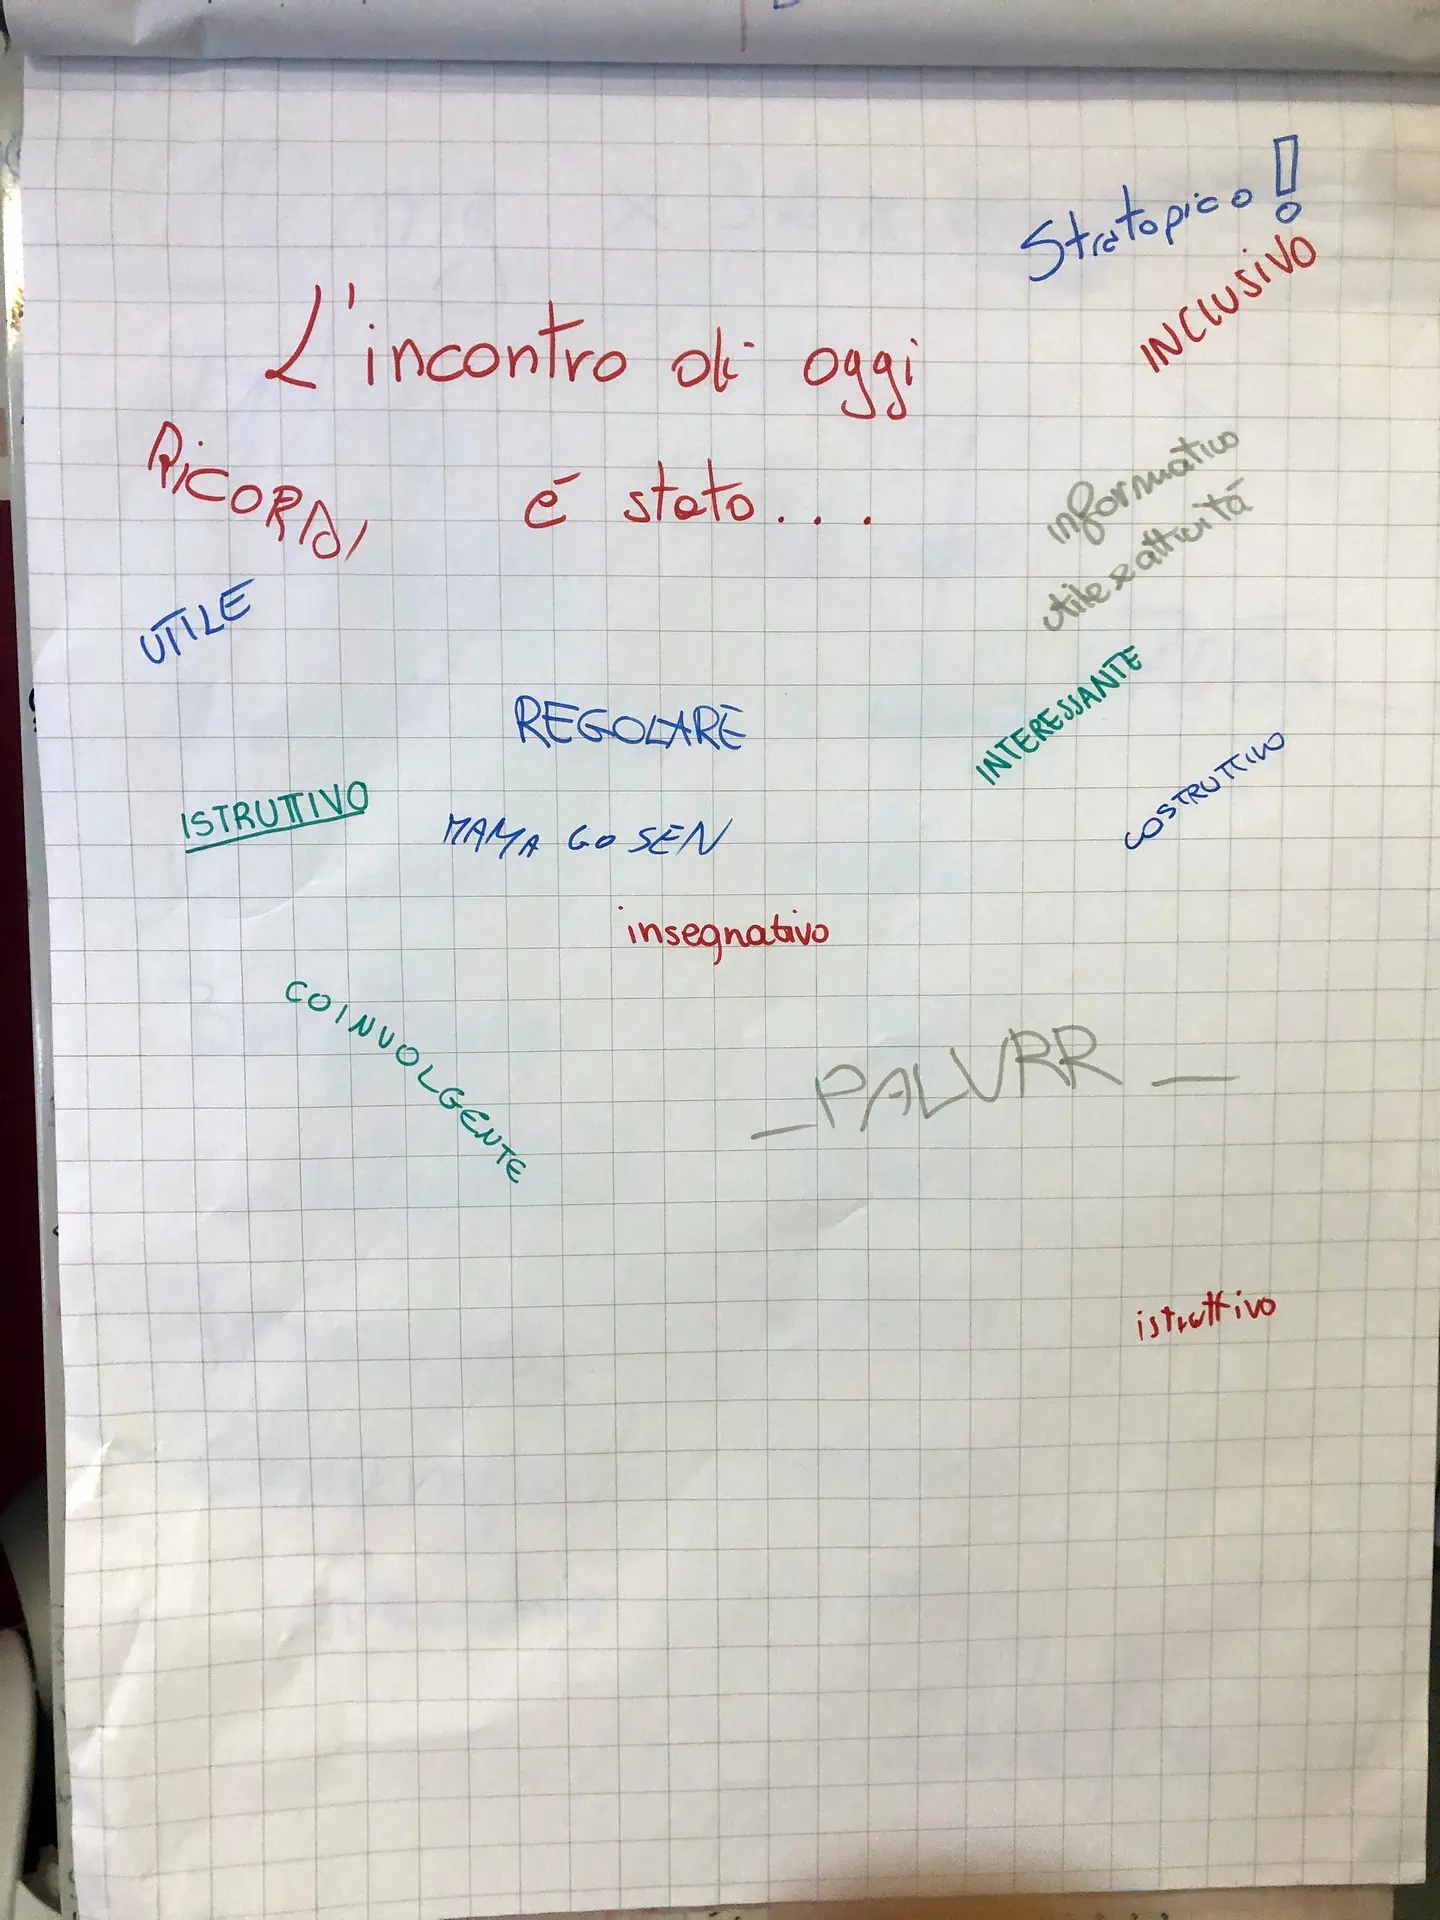 Stratopico!
INCLUSIVO
L'incontro di oggi
RICORDI
é stato...
informativo
utile e attivitá
UTILE
INTERESSANTE
REGOLARE
COSTRUTTIVO
ISTRUTTIVO
MAMA GO SEN
insegnativo
COINVOLGENTE
_PALVRR_
istruttivo